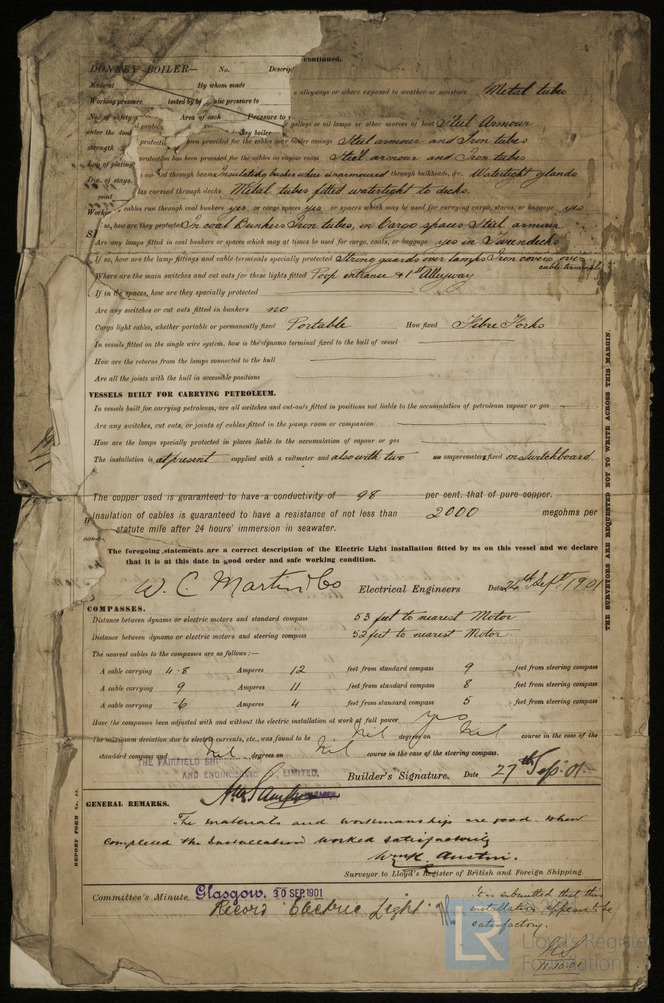 continued.
DONKEY BOILER— No. Descrip
Material By whom made
alleyways or where exposed to weather or moisture Metal tubes
Working pressure tested by hydraulic pressure to
No. of safety Area of each Pressure to
galleys or oil lamps or other sources of heat Steel Armour
enter the donkey boiler
been provided for the cables near boiler casings Steel armour and Iron tubes
strength
protection has been provided for the cables in engine room Steel armour and Iron tubes
Lap of plating
through beams Insulating bushes where unarmoured through bulkheads, &c. Watertight glands
Dia. of stays,
les carried through decks Metal tubes fitted watertight to decks.
point
cables run through coal bunkers yes or cargo spaces yes or spaces which may be used for carrying cargo, stores, or baggage yes
so, how are they protected In coal Bunkers Iron tubes, in Cargo spaces Steel armour
Are any lamps fitted in coal bunkers or spaces which may at times be used for cargo, coals, or baggage yes in Tweendecks
If so, how are the lamp fittings and cable terminals specially protected Strong guards over lamps Iron covers over cable terminals
Where are the main switches and cut outs for these lights fitted Poop entrance & 1st Alleyway
If in the spaces, how are they specially protected
Are any switches or cut outs fitted in bunkers no
Cargo light cables, whether portable or permanently fixed Portable How fixed Fibre Forks
In vessels fitted on the single wire system, how is the dynamo terminal fixed to the hull of vessel
How are the returns from the lamps connected to the hull
Are all the joints with the hull in accessible positions
VESSELS BUILT FOR CARRYING PETROLEUM.
In vessels built for carrying petroleum, are all switches and cut-outs fitted in positions not liable to the accumulation of petroleum vapour or gas
Are any switches, cut outs, or joints of cables fitted in the pump room or companion
How are the lamps specially protected in places liable to the accumulation of vapour or gas
The installation is at present supplied with a voltmeter and also with two an amperemeter, fixed on Switchboard
The copper used is guaranteed to have a conductivity of 98 per cent. that of pure copper.
insulation of cables is guaranteed to have a resistance of not less than 2000 megohms per
statute mile after 24 hours' immersion in seawater.
The foregoing statements are a correct description of the Electric Light installation fitted by us on this vessel and we declare
that it is at this date in good order and safe working condition.
W. C. Martin & Co Electrical Engineers Date 24th Sept. 1901
COMPASSES.
Distance between dynamo or electric motors and standard compass 53 feet to nearest Motor
Distance between dynamo or electric motors and steering compass 52 feet to nearest Motor.
The nearest cables to the compasses are as follows:—
A cable carrying 4.8 Amperes 12 feet from standard compass 9 feet from steering compass
A cable carrying 9 Amperes 11 feet from standard compass 8 feet from steering compass
A cable carrying .6 Amperes 4 feet from standard compass 5 feet from steering compass
Have the compasses been adjusted with and without the electric installation at work at full power yes
The maximum deviation due to electric currents, etc., was found to be Nil degrees on Nil course in the case of the
standard compass and Nil degrees on Nil course in the case of the steering compass.
THE FAIRFIELD SHIP
AND ENGINEERING LIMITED. Builder's Signature. Date 27th Sep. 01.
MANAGER
GENERAL REMARKS.
The materials and workmanship are good. When
completed the Installation worked satisfactorily
Wm. R. Austin.
Surveyor to Lloyd's Register of British and Foreign Shipping.
Committee's Minute Glasgow. 30 SEP. 1901
Record "Electric Light"
It is submitted that this
installation appears to be
satisfactory.
11.10.01
THE SURVEYORS ARE REQUESTED NOT TO WRITE ACROSS THIS MARGIN.
REPORT FORM No. 13.
LR
Lloyd's Register
Foundation